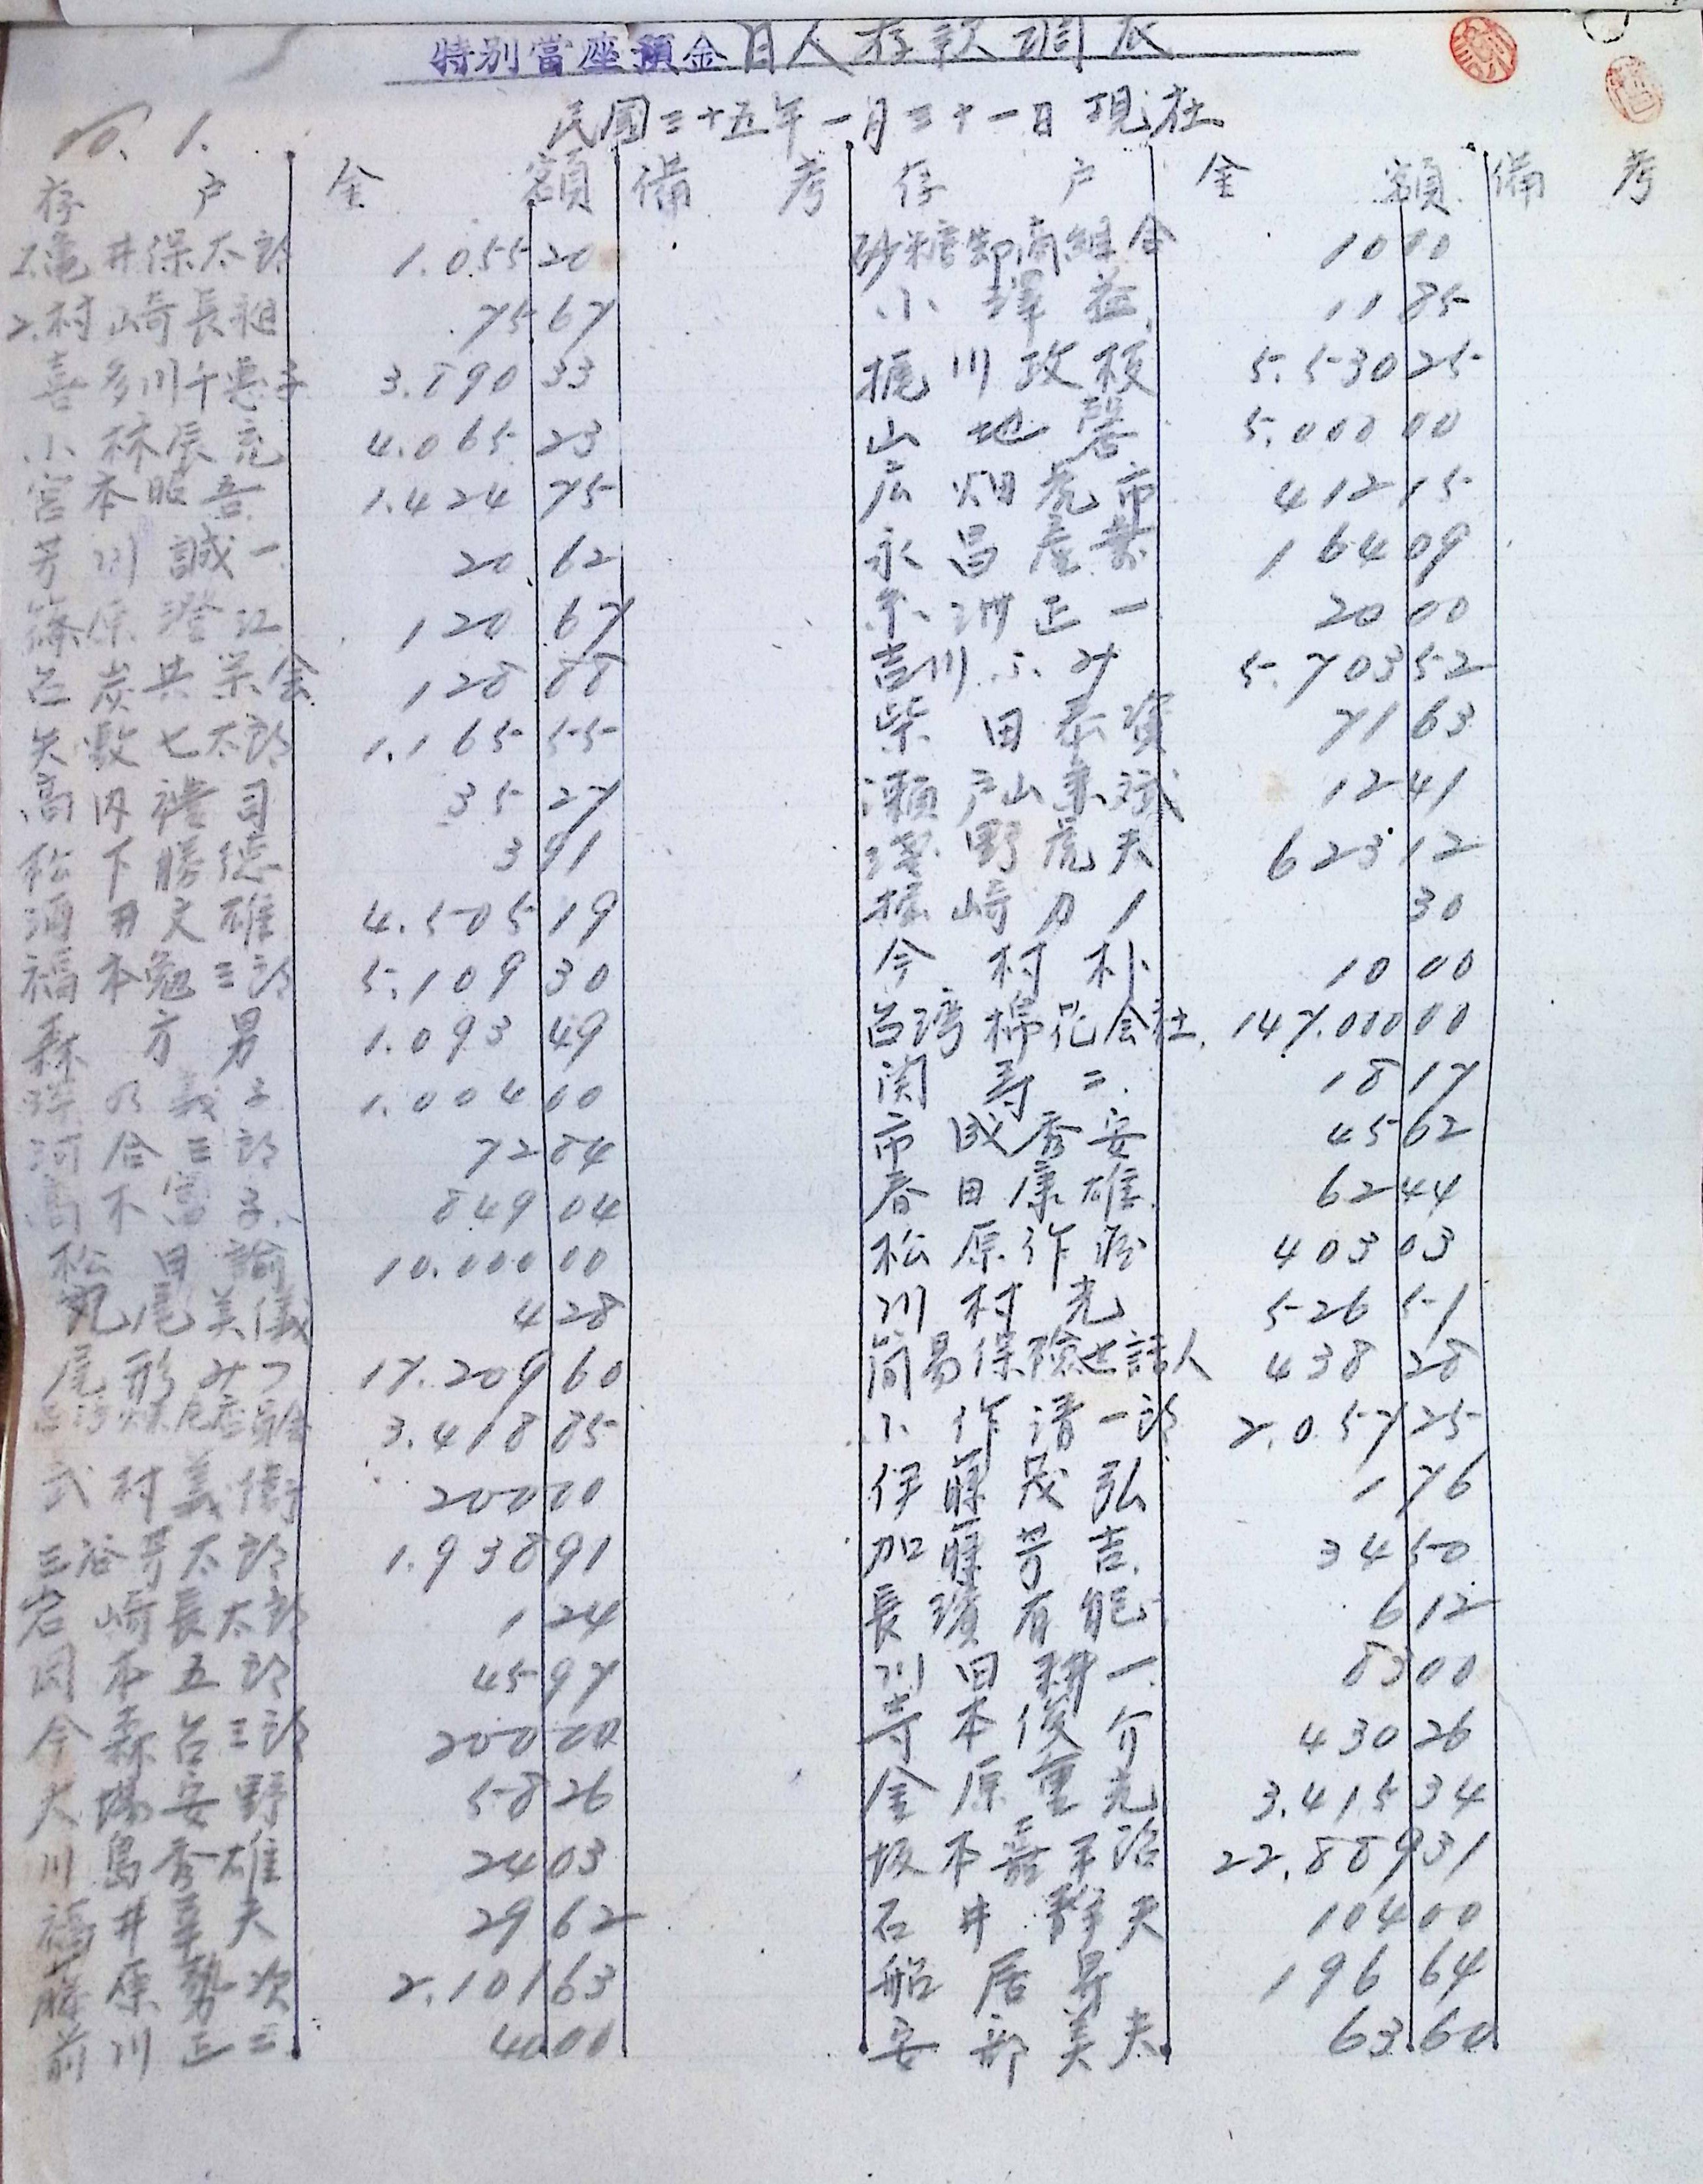 特別當座預金日人存款調底
民國三十五年一月三十一日現在
No. 1.
存戶 金額 備考 存戶 金額 備考
1.亀井保太郎 1.055 20
2.村山崎長祖 75 67
喜多川千恵子 3.890 33
小林辰克 4.065 23
宮本昭吾 1.424 75
芳川誠一 20 62
篠原澄江 120 67
石炭共栄会 128 88
矢敷七太郎 1.165 55
高内禮司 35 27
松下勝徳 3 91
酒井文雄 4.505 19
福本勉三郎 5.109 30
森方男 1.093 49
義子 1.004 00
河合三郎 72 84
高木富子 849 04
松田諭 10.000 00
丸尾美儀 4 28
尾形みつ 17.209 60
3.418 85
武村義衛 200 00
三谷芳太郎 1.938 91
岩崎長太郎 1 24
岡本五郎 45 97
今森台三郎 200 00
大場安野 58 26
川島秀雄 24 03
福井幸夫 29 62
藤原勢次 2.101 63
前川正三 40 00
砂糖卸商組合 10 10
小澤益 11 85
梶川政枝 5.530 25
山地馨 5.000 00
広畑虎市 412 15
永昌産業 164 09
京洲正一 20 00
吉川ふみ 5.703 52
柴田泰資 71 63
瀬戸山兼斌 12 41
濱野虎夫 623 12
崎力 30
今村朴 10 00
台湾棉花会社 147.000 00
関寿二 18 17
市成秀安 45 62
春田康雄 62 44
松原作治 403 03
川村光 526 51
簡易保險世話人 438 28
小作清一郎 2.057 25
伊藤茂弘 1 76
加藤芳吉 34 50
長濱有能 6 12
川田耕一 83 00
寺本俊介 430 26
金原重光 3.415 34
坂本嘉平治 22.889 31
石井静夫 104 00
船居昇 196 64
安部美夫 63 60